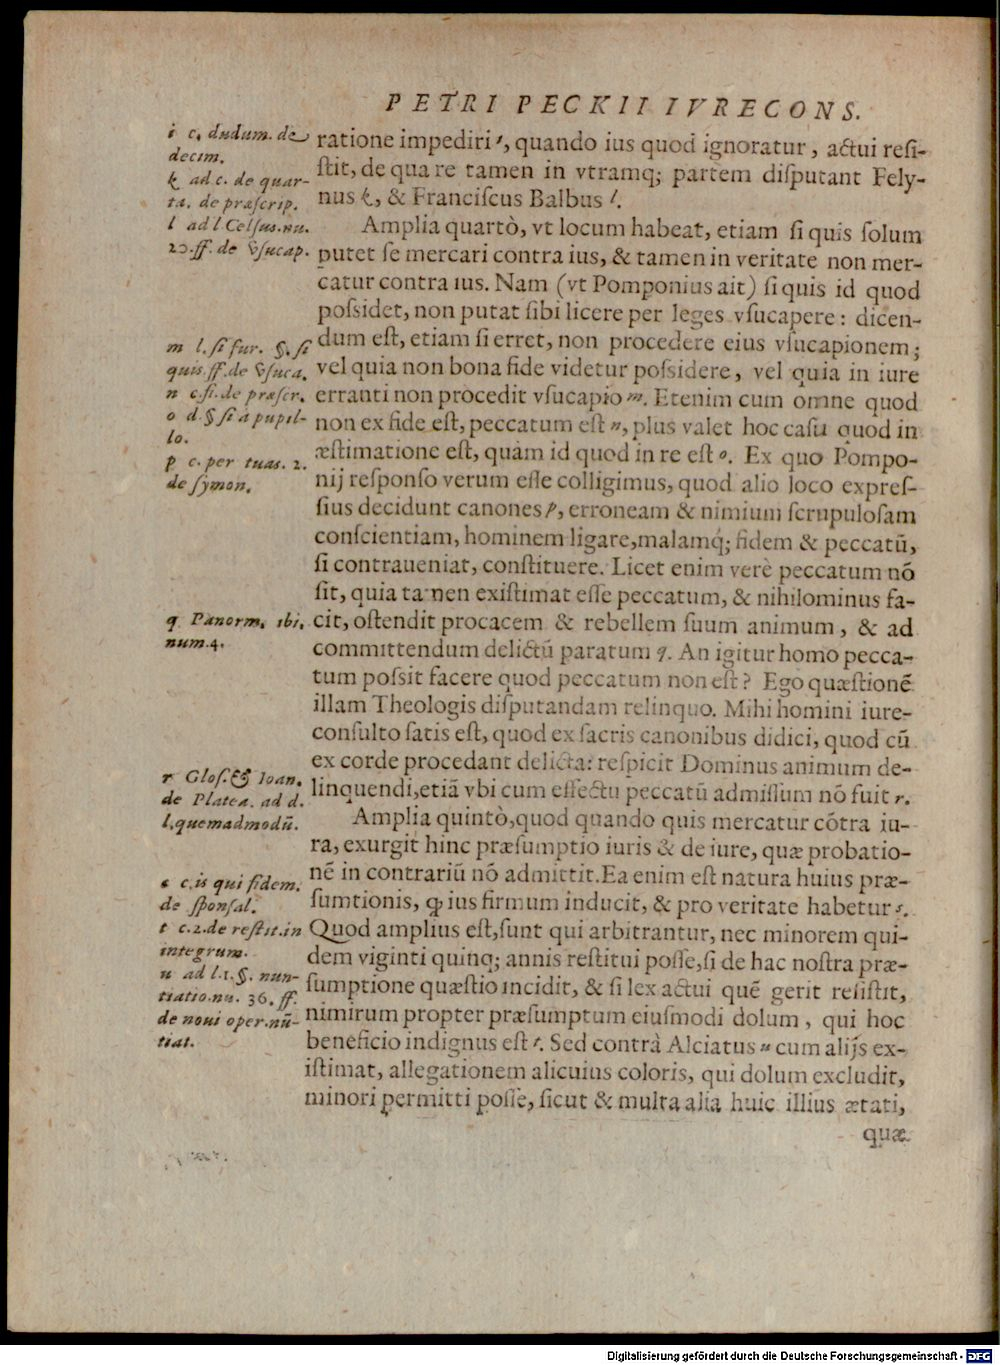 PETRI PECKII IVRECONS.
ratione impediri i, quando ius quod ignoratur, actui resi-
stit, de qua re tamen in vtramq; partem disputant Fely-
nus k, & Franciscus Balbus l.
Amplia quartò, vt locum habeat, etiam si quis solum
putet se mercari contra ius, & tamen in veritate non mer-
catur contra ius. Nam (vt Pomponius ait) si quis id quod
possidet, non putat sibi licere per leges vsucapere: dicen-
dum est, etiam si erret, non procedere eius vsucapionem;
vel quia non bona fide videtur possidere, vel quia in iure
erranti non procedit vsucapio m. Etenim cum omne quod
non ex fide est, peccatum est n, plus valet hoc casu quod in
æstimatione est, quàm id quod in re est o. Ex quo Pompo-
nij responso verum esse colligimus, quod alio loco expres-
sius decidunt canones p, erroneam & nimium scrupulosam
conscientiam, hominem ligare, malamq́; fidem & peccatū,
si contraueniat, constituere. Licet enim verè peccatum nō
sit, quia tamen existimat esse peccatum, & nihilominus fa-
cit, ostendit procacem & rebellem suum animum, & ad
committendum delictū paratum q. An igitur homo pecca-
tum possit facere quod peccatum non est? Ego quæstionē
illam Theologis disputandam relinquo. Mihi homini iure-
consulto satis est, quod ex sacris canonibus didici, quod cū
ex corde procedant delicta: respicit Dominus animum de-
linquendi, etiā vbi cum effectu peccatū admissum nō fuit r.
Amplia quintò, quod quando quis mercatur cōtra iu-
ra, exurgit hinc præsumptio iuris & de iure, quæ probatio-
nē in contrariū nō admittit. Ea enim est natura huius præ-
sumtionis, ꝙ ius firmum inducit, & pro veritate habetur s.
Quod amplius est, sunt qui arbitrantur, nec minorem qui-
dem viginti quinq; annis restitui posse, si de hac nostra præ-
sumptione quæstio incidit, & si lex actui quē gerit resistit,
nimirum propter præsumptum eiusmodi dolum, qui hoc
beneficio indignus est t. Sed contrà Alciatus u cum alijs ex-
istimat, allegationem alicuius coloris, qui dolum excludit,
minori permitti posse, sicut & multa alia huic illius ætati,
quæ
i c. dudum. de
decim.
k ad c. de quar-
ta. de præscrip.
l ad l. Celsus. nu.
20. ff. de vsucap.
m l. si fur. §. si
quis. ff. de vsuca.
n c. fi. de præscr.
o d. § si à pupil-
lo.
p c. per tuas. 2.
de symon.
q Panorm. ibi.
num. 4.
r Glos. & Ioan.
de Platea. ad d.
l. quemadmodū.
s c. is qui fidem.
de sponsal.
t c. 2. de restit. in
integrum.
u ad l. 1. §. nun-
tiatio. nu. 36. ff.
de noui oper. nū-
tiat.
Digitalisierung gefördert durch die Deutsche Forschungsgemeinschaft - DFG